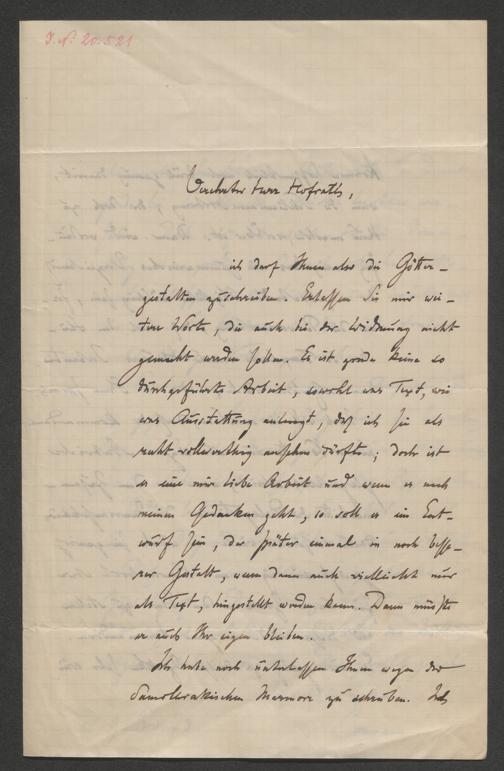 J.N. 20.521
Verehrter Herr Hofrath,
ich darf Ihnen also die Götter-
gestalten zuschreiben. Erlassen Sie mir wei-
tere Worte, die auch bei der Widmung nicht
gemacht werden sollen. Es ist grade keine so
durchgeführte Arbeit, sowohl was Text, wie
was Ausstattung anlangt, daß ich sie als
recht vollwerthig ansehen dürfte; doch ist
es eine mir liebe Arbeit und wenn es nach
meinen Gedanken geht, so soll es ein Ent-
wurf sein, der später einmal in noch besse-
rer Gestalt, wenn dann auch vielleicht nur
als Text, hingestellt werden kann. Dann müßte
er auch Ihr eigen bleiben.
Ich habe noch unterlassen Ihnen wegen der
Samothrakischen Marmore zu schreiben. Ich